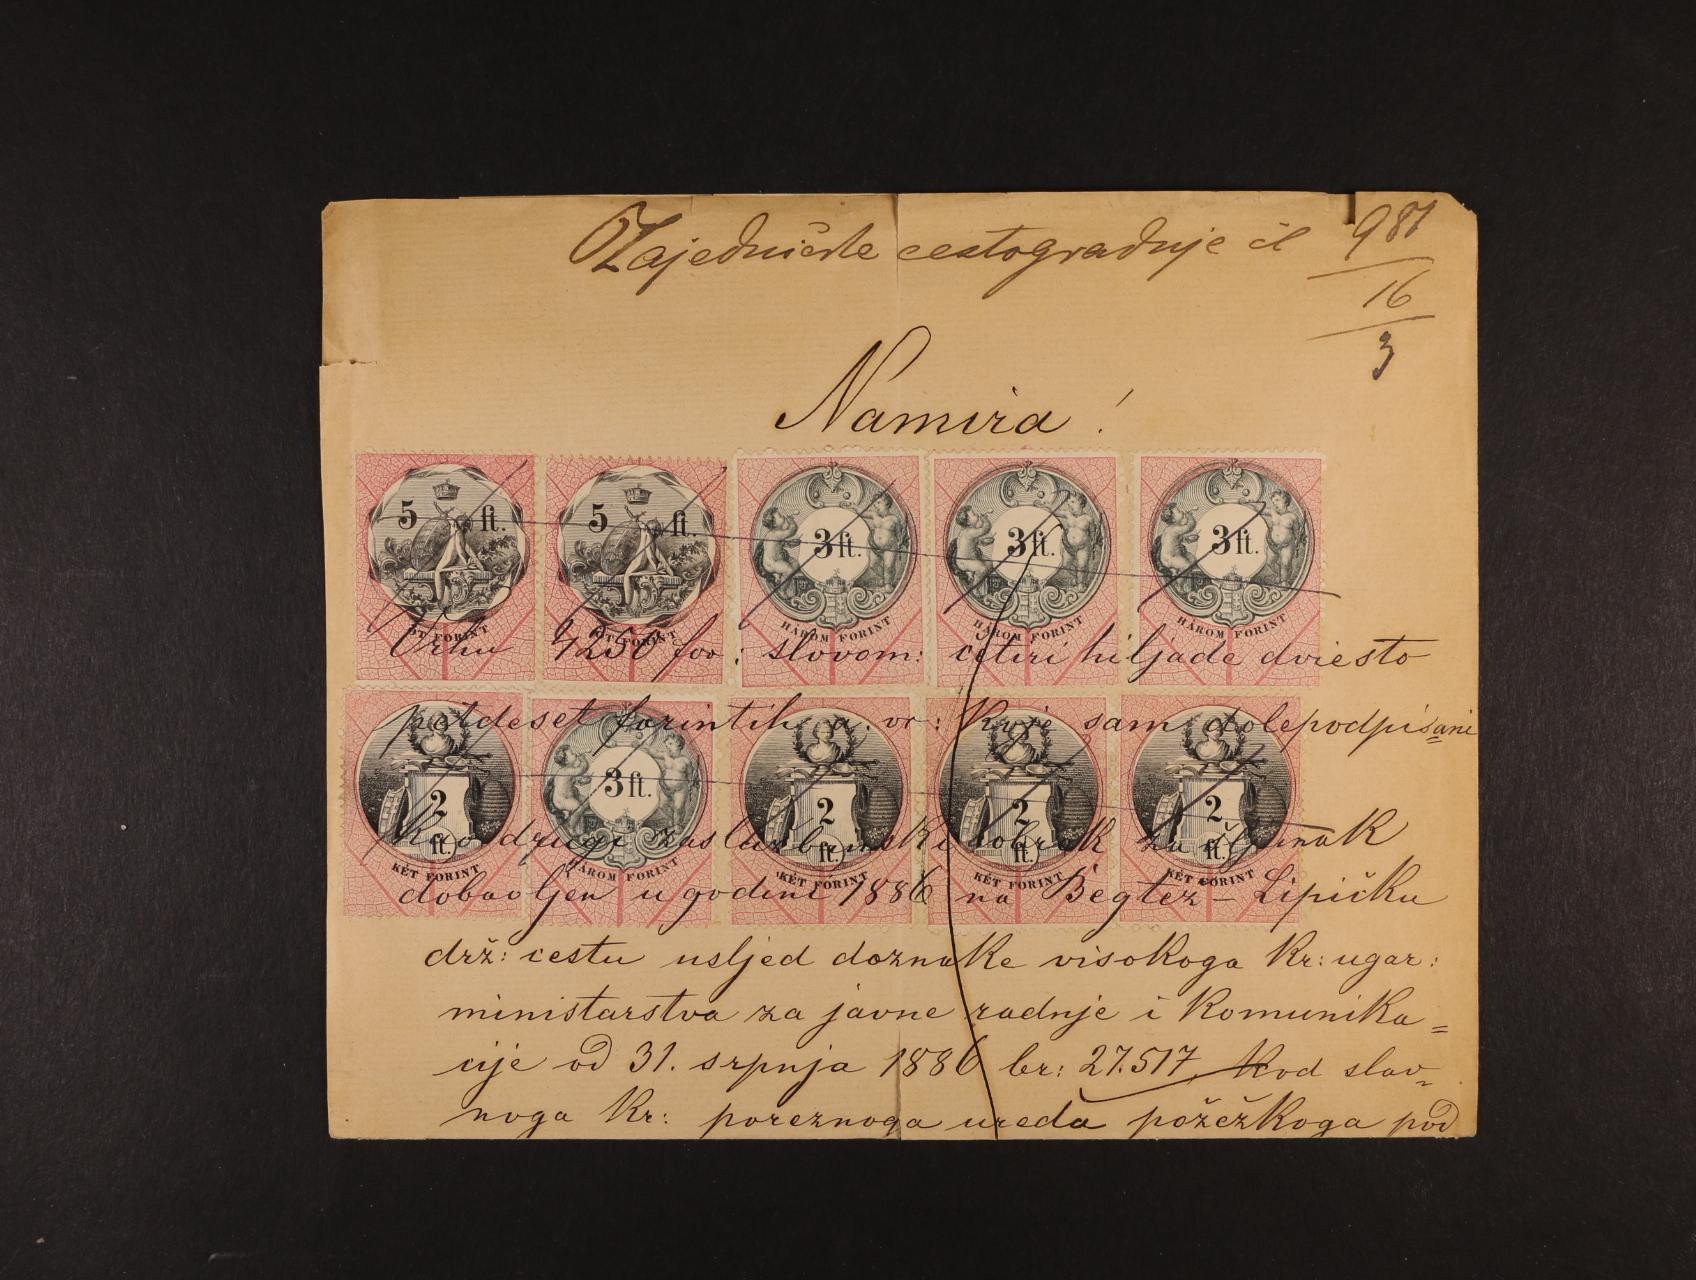 Zajedničke cestogradnje čl 981
16
3
Namira!
5 ft. 5 ft. 3 ft. 3 ft. 3 ft.
ÖT FORINT ÖT FORINT HÁROM FORINT HÁROM FORINT HÁROM FORINT
Vrhu 4250 for: slovom: četiri hiljade dviesto
petdeset forintih a. vr: koje sam dolepodpisani
2 ft. 3 ft. 2 ft. 2 ft. 2 ft.
kao drugi zaslužbinski obrok za šljunak
KÉT FORINT HÁROM FORINT KÉT FORINT KÉT FORINT KÉT FORINT
dobavljen u godini 1886 na Begtež – Lipičku
drž: cestu usljed doznake visokoga kr: ugar:
ministarstva za javne radnje i komunika=
cije od 31. srpnja 1886 br: 27.517, kod slav=
noga kr: poreznoga ureda požežkoga pod